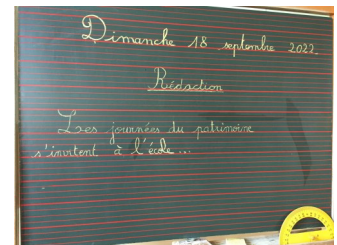 Dimanche 18 septembre 2022
Rédaction
Les journées du patrimoine
s'invitent à l'école...